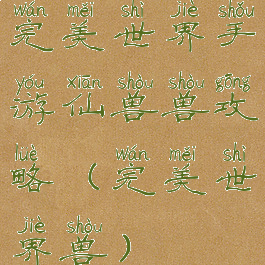 wán měi shì jiè shǒu
完美世界手
yóu xiān shòu shòu gōng
游仙兽兽攻
lüè wán měi shì
略（完美世
jiè shòu
界兽）